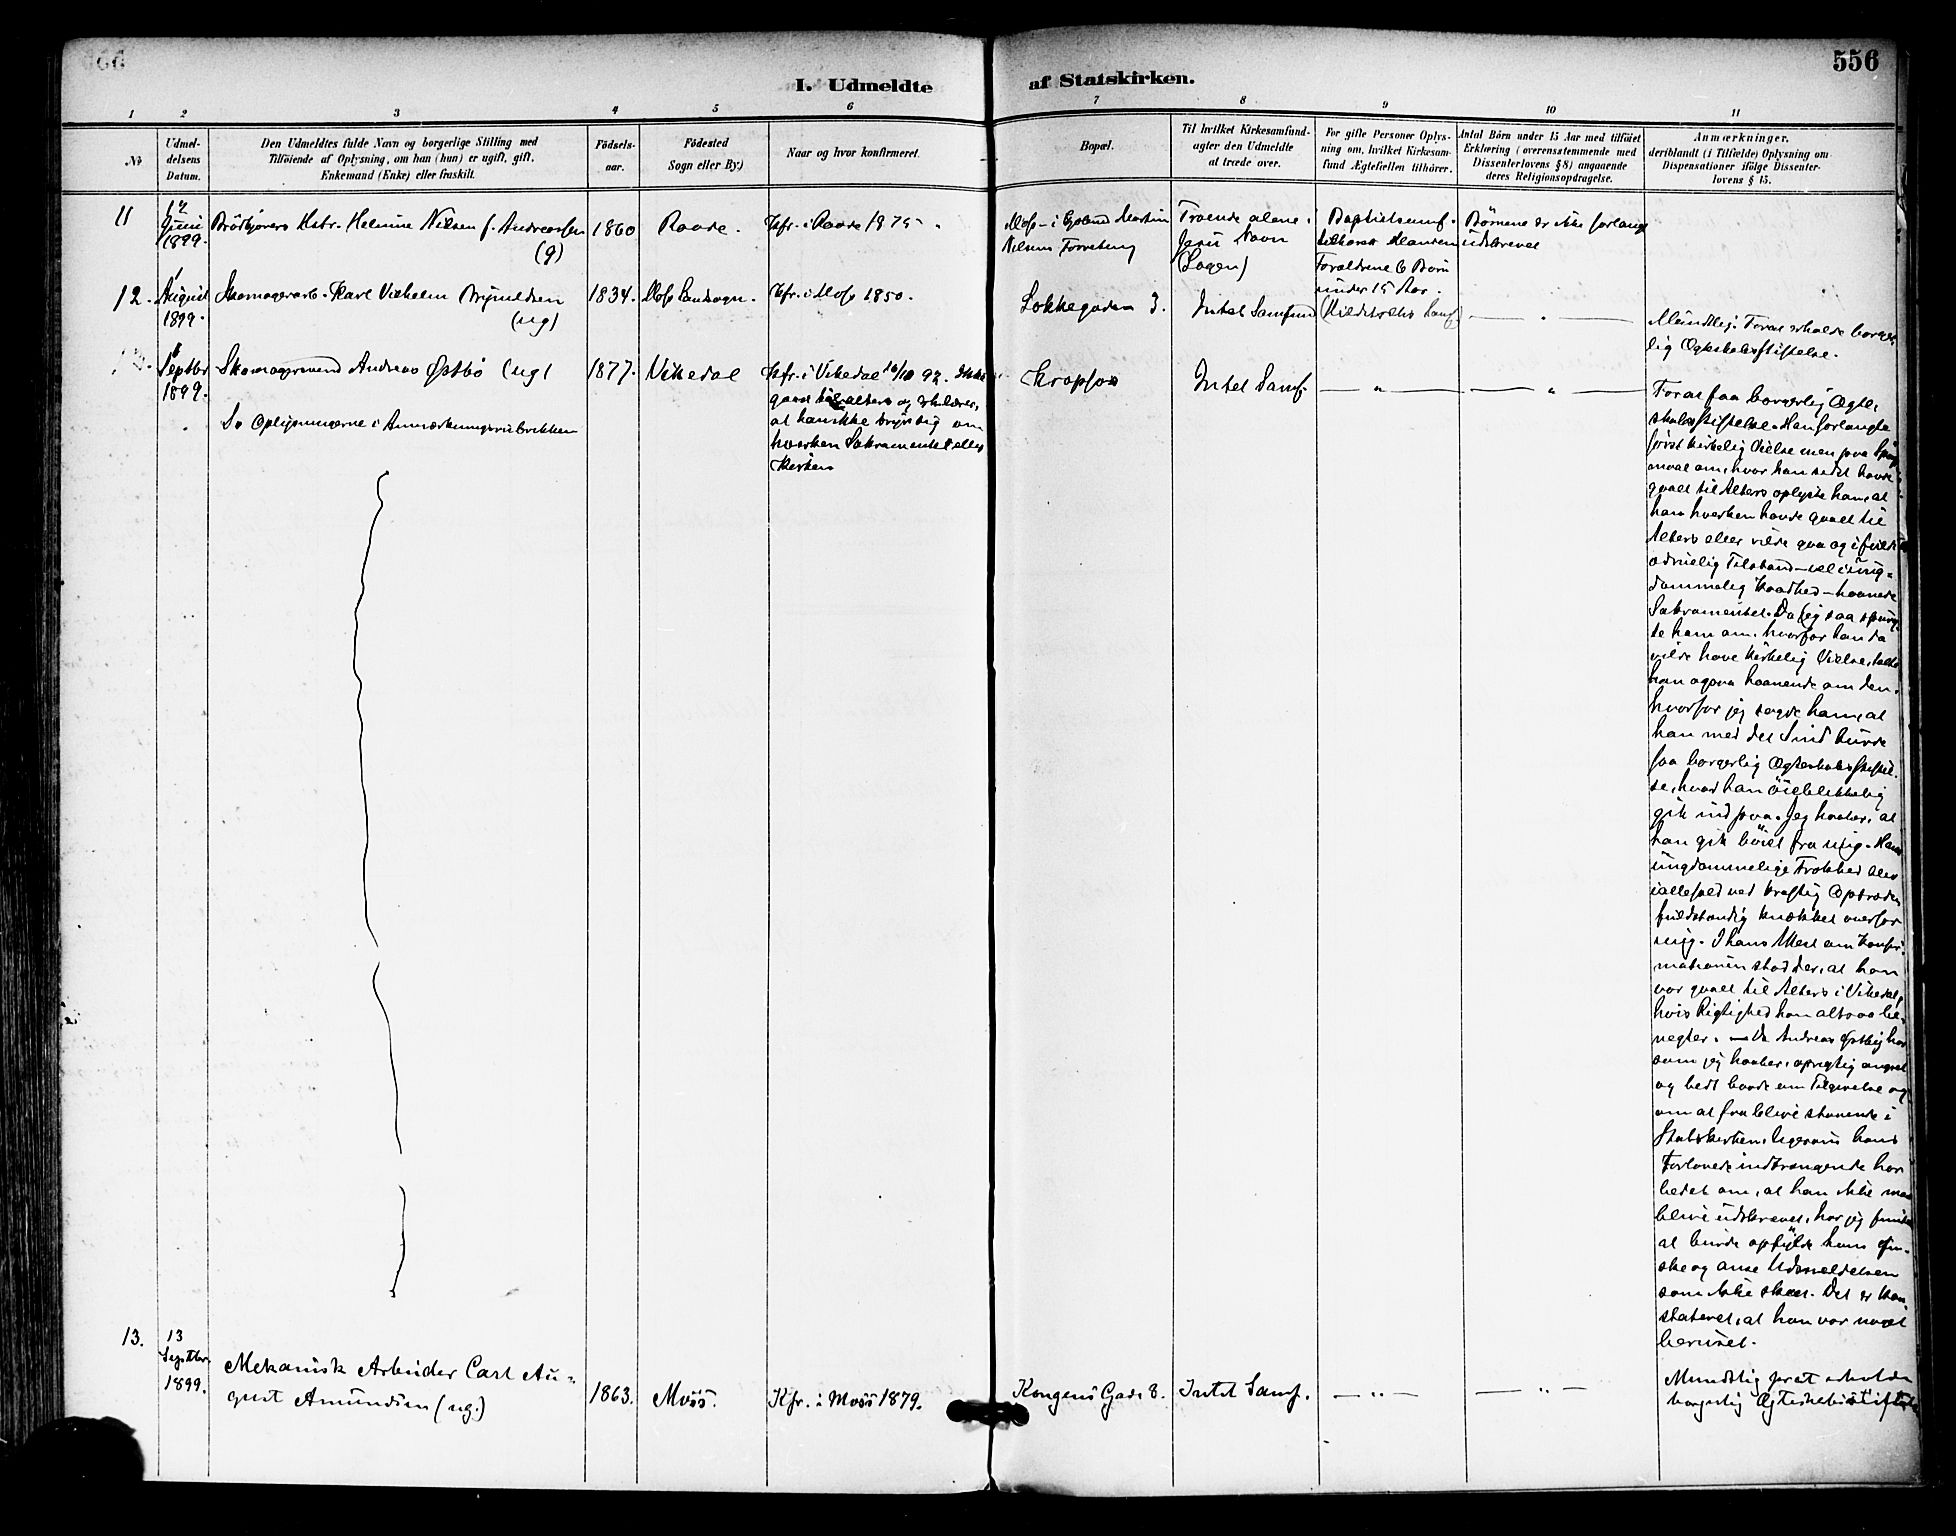 556
I. Udmeldte af Statskirken.
1 2 3 4 5 6 7 8 9 10 11
№
Udmel-
delsens
Datum.
Den Udmeldtes fulde Navn og borgerlige Stilling med
Tilføiende af Oplysning, om han (hun) er ugift, gift,
Enkemand (Enke) eller fraskilt.
Fødsels-
aar.
Fødested
Sogn eller By.)
Naar og hvor konfirmeret.
Bopæl.
Til hvilket Kirkesamfund-
agter den Udmeldte
at træde over.
For gifte Personer Oplys-
ning om, hvilket Kirkesam-
fund Ægtefællen tilhører.
Antal Börn under 15 Aar med tilføiet
Erklæring (overensstemmende med
Dissenterlovens § 8) angaaende
deres Religionsopdragelse.
Anmærkninger,
deriblandt (i Tilfælde) Oplysning om
Dispensationer ifölge Dissenter-
lovens § 15.
11
Juni
1899.
Hstr. Helmine Nilsen f. Andreassen
(g)
1860
Raade.
Kfr. i Raade 1875.
Moss - i Martin
Nilsens
Troende alene i
Jesu Navn
(Logen)
Baptistsamf.
Hansen
Forældrene 6 Børn
under 15 Aar.
Børnene er ikke forlangt
udskrevet
12.
1
August
1899.
Skomagerarb. Karl Vilhelm Brynildsen
(ug)
1834.
Moss Landsogn.
Kfr. i Moss 1850.
Løkkegaden 3.
Intet Samfund
Mundtlig. For at erholde borger-
lig Ægteskabsstiftelse.
8
Septbr
1899.
Skomagersvend Andreas Østbø (ug)
Se Oplysningerne i Anmærkningsrubrikken
1877.
Vikedal
Kfr. i Vikedal 16/10 92. Ikke
gaaet til alters og erklærer,
at han ikke bryr sig om
hverken Sakramentet eller
Kirken
Kropfos
Intet Samf.
For at faa borgerlig Ægte-
skabsstiftelse. Han forlangte
først kirkelig Vielse men paa Spørg-
smaal om, hvor han sidst havde
gaaet til Alters oplyste han, at
han hverken havde gaaet til
Alters eller vilde gaa og i fuld
ædruelig Tilstand - vel i ung-
dommelig Kaadhed - haanede
Sakramentet. Da jeg saa spurg-
te ham om, hvorfor han da
vilde have kirkelig Vielse, talte
han ogsaa haanende om den,
hvorfor jeg sagde ham, at
han med det Sind burde
faa borgerlig Ægteskabsstiftel-
se, hvad han öieblikkelig
gik ind paa. Jeg haaber, at
han gik böiet fra mig. Hans
ungdommelige Frækhed blev
iallefald ved kraftig Optræden
fuldstændig knækket overfor
mig. I hans Attest om Konfir-
mationen stod der, at han
var gaaet til Alters i Vikedal,
hvis Rigtighed han altsaa be-
negter. - Da Andreas Østby har
som jeg haaber, oprigtig angret
og bedt baade om Tilgivelse og
om at faa blive staaende i
Statskirken, ligesom hans
Forlovede indtrængende har
bedet om, at han ikke maa
blive udskrevet, har jeg fundet
at burde opfylde hans Øn-
ske og anse Udmeldelsen
som ikke skeet. Det er kon-
stateret, at han var
beruset.
13.
13
Septbr.
1899.
Mekanisk Arbeider Carl Au-
gust Amundsen (ug.)
1863.
Moss.
Kfr. i Moss 1879.
Kongens Gade 8.
Intet Samf.
Mundtlig for at erholde
borgerlig Ægteskabsstiftelse